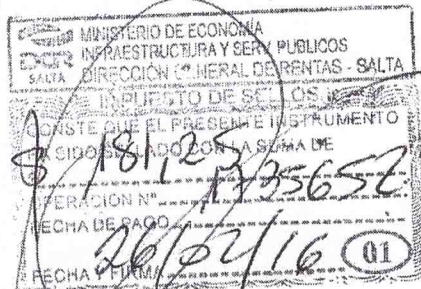 MINISTERIO DE ECONOMÍA
INFRAESTRUCTURA Y SERV. PUBLICOS
DIRECCIÓN GENERAL DE RENTAS - SALTA
DGR
SALTA
IMPUESTO DE SELLOS
CONSTE QUE EL PRESENTE INSTRUMENTO
HA SIDO SELLADO CON LA SUMA DE
$ 181,25
OPERACIÓN Nº 1735652
FECHA DE PAGO
26/02/16 01
FECHA Y FIRMA